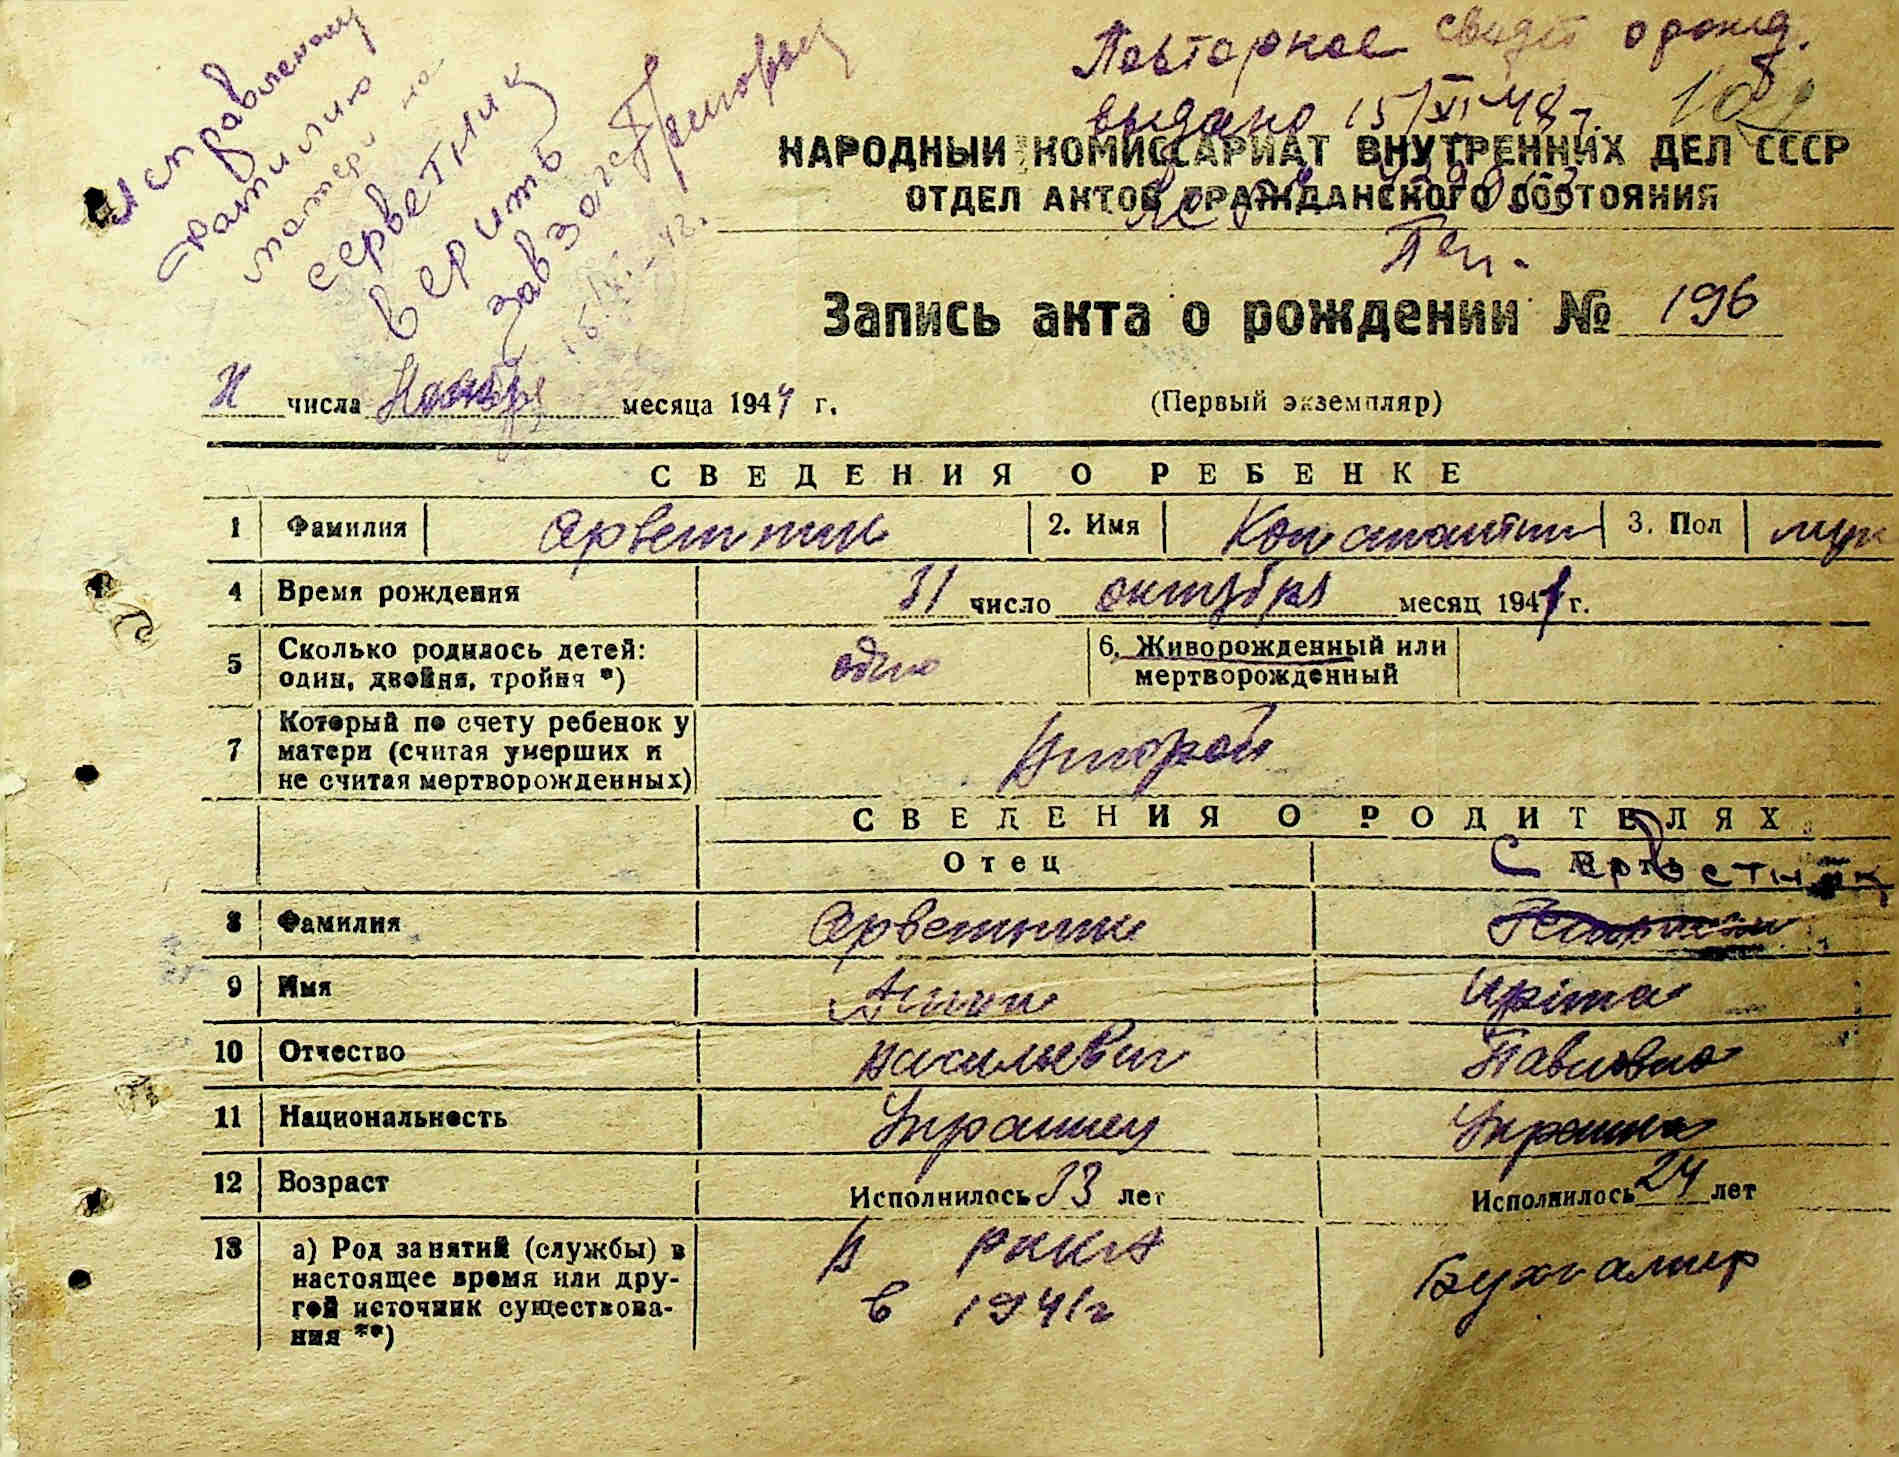 исправленому
фамилию
матери на
серветник
верить
завзагс
15/XI-42г.
Повторное свидет о рожд.
выдано 15/XI-48г.
НАРОДНЫЙ КОМИССАРИАТ ВНУТРЕННИХ ДЕЛ СССР
ОТДЕЛ АКТОВ ГРАЖДАНСКОГО СОСТОЯНИЯ
Запись акта о рождении № 196
числа Ноября месяца 194 г.
(Первый экземпляр)
СВЕДЕНИЯ О РЕБЕНКЕ
1 Фамилия 2. Имя Константин 3. Пол муж
4 Время рождения 31 число октября месяц 1941 г.
5 Сколько родилось детей: один, двойня, тройня *) одно
6. Живорожденный или мертворожденный
7 Который по счету ребенок у матери (считая умерших и не считая мертворожденных) Второй
СВЕДЕНИЯ О РОДИТЕЛЯХ
Отец Мать
Серветник
8 Фамилия
9 Имя
10 Отчество Васильевич Павловна
11 Национальность Украинец Украинка
12 Возраст Исполнилось 33 лет Исполнилось 24 лет
13 а) Род занятий (службы) в настоящее время или другой источник существования **)
В РККА
в 1941г
Бухгалтер